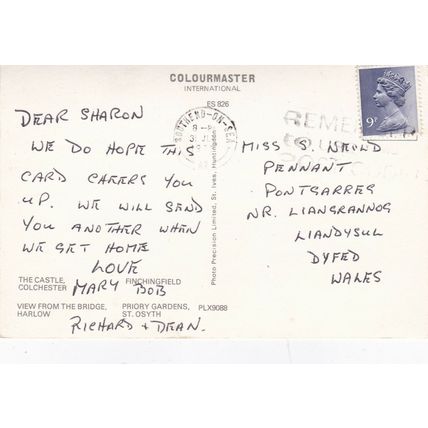 COLOURMASTER
INTERNATIONAL
ES 826
SOUTHEND-ON-SEA
9P
REMEMBER
DEAR SHARON
WE DO HOPE THIS
CARD CHEERS YOU
UP. WE WILL SEND
YOU ANOTHER WHEN
WE GET HOME
LOVE
MARY BOB
RICHARD + DEAN.
MISS S. WEILD
PENNANT
PONTGARREG
NR. LIANGRANNOG
LIANDYSUL
DYFED
WALES
Photo Precision Limited, St. Ives, Huntingdon
THE CASTLE, COLCHESTER
FINCHINGFIELD
VIEW FROM THE BRIDGE, HARLOW
PRIORY GARDENS, ST. OSYTH
PLX9088